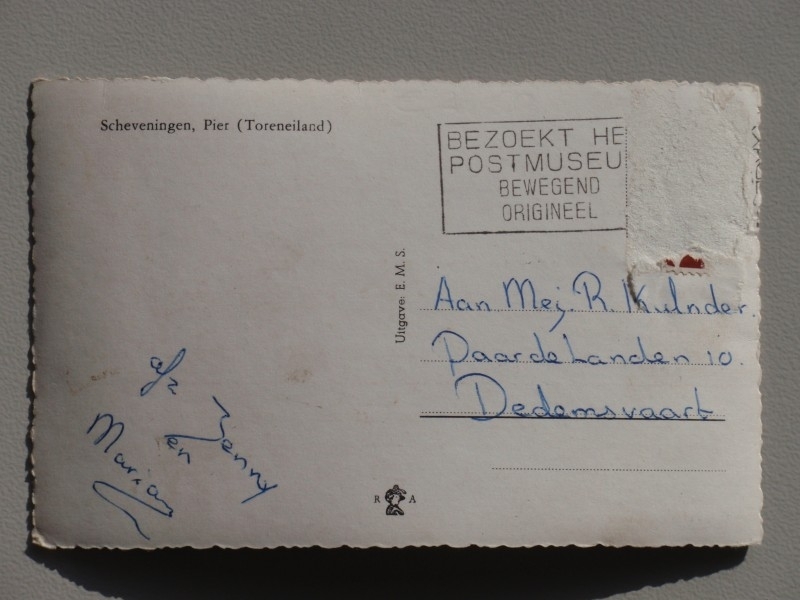 Scheveningen, Pier (Toreneiland)
BEZOEKT HE
POSTMUSEU
BEWEGEND
ORIGINEEL
Uitgave: E. M. S.
Aan Mej. R. Kulnder.
Paardelanden 10.
Dedemsvaart
afz Jenny
en
Marian
R A